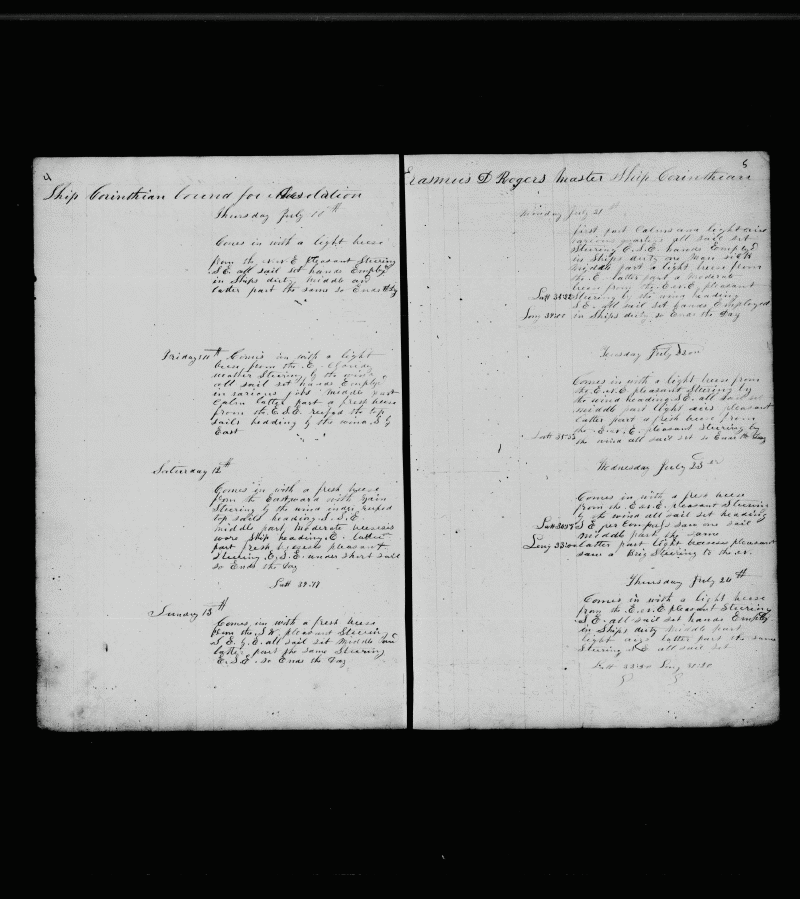 4
Ship Corinthian bound for Desolation
Thursday July 10th
Comes in with a light breese
from the N.N.E Pleasant Steering
S.E. all sail set hands Employ
in Ships duty Middle and
latter part the same So Ends the day
Friday 11th Comes in with a light
breese from the E.
weather Steering by the wind
all sail set hands Employ
in various jobs Middle part
Calm latter part a fresh breese
from the E.S.E. reefed the top
sails heading by the wind S by
East
Saturday 12th
Comes in with a fresh breese
from the Eastward with rain
Steering by the wind under reefed
top sails heading S.S.E
middle part Moderate breeses
wore Ship heading E. latter
part fresh breeses pleasant
Steering E.S.E. under short sail
so Ends the day
Latt
Sunday 13th
Comes in with a fresh breese
from the S.W. pleasant Steering
S.E. by E. all sail set Middle and
latter part the same Steering
E.S.E. so Ends the day
5
Erasmus D Rogers Master Ship Corinthian
Monday July 21st
first part Calms and light airs
various quarters all sail set
Steering E.S.E. hands Employd
in Ships duty one man sick
Middle part a light breese from
the E. latter part a Moderate
breese from the E.N.E. pleasant
Latt Steering by the wind heading
S.E. all sail set hands Employed
Long in Ships duty so Ends the day
Tuesday July 22nd
Comes in with a light breese from
the E.N.E. pleasant Steering by
the wind heading S.E. all sail set
middle part light airs pleasant
latter part a fresh breese from
the E.N.E. pleasant Steering by
Latt the wind all sail set so Ends the day
Wednesday July 23rd
Comes in with a fresh breese
from the E.N.E. Pleasant Steering
Latt S.E. per Compass saw one sail
middle part the same
Long latter part light breeses pleasant
saw a Brig Steering to the N.
Thursday July 24th
Comes in with a light breese
from the E.N.E. pleasant Steering
S.E. all sail set hands Employ
in Ships duty Middle part
light airs latter part the same
Steering S.E all sail set
Latt Long